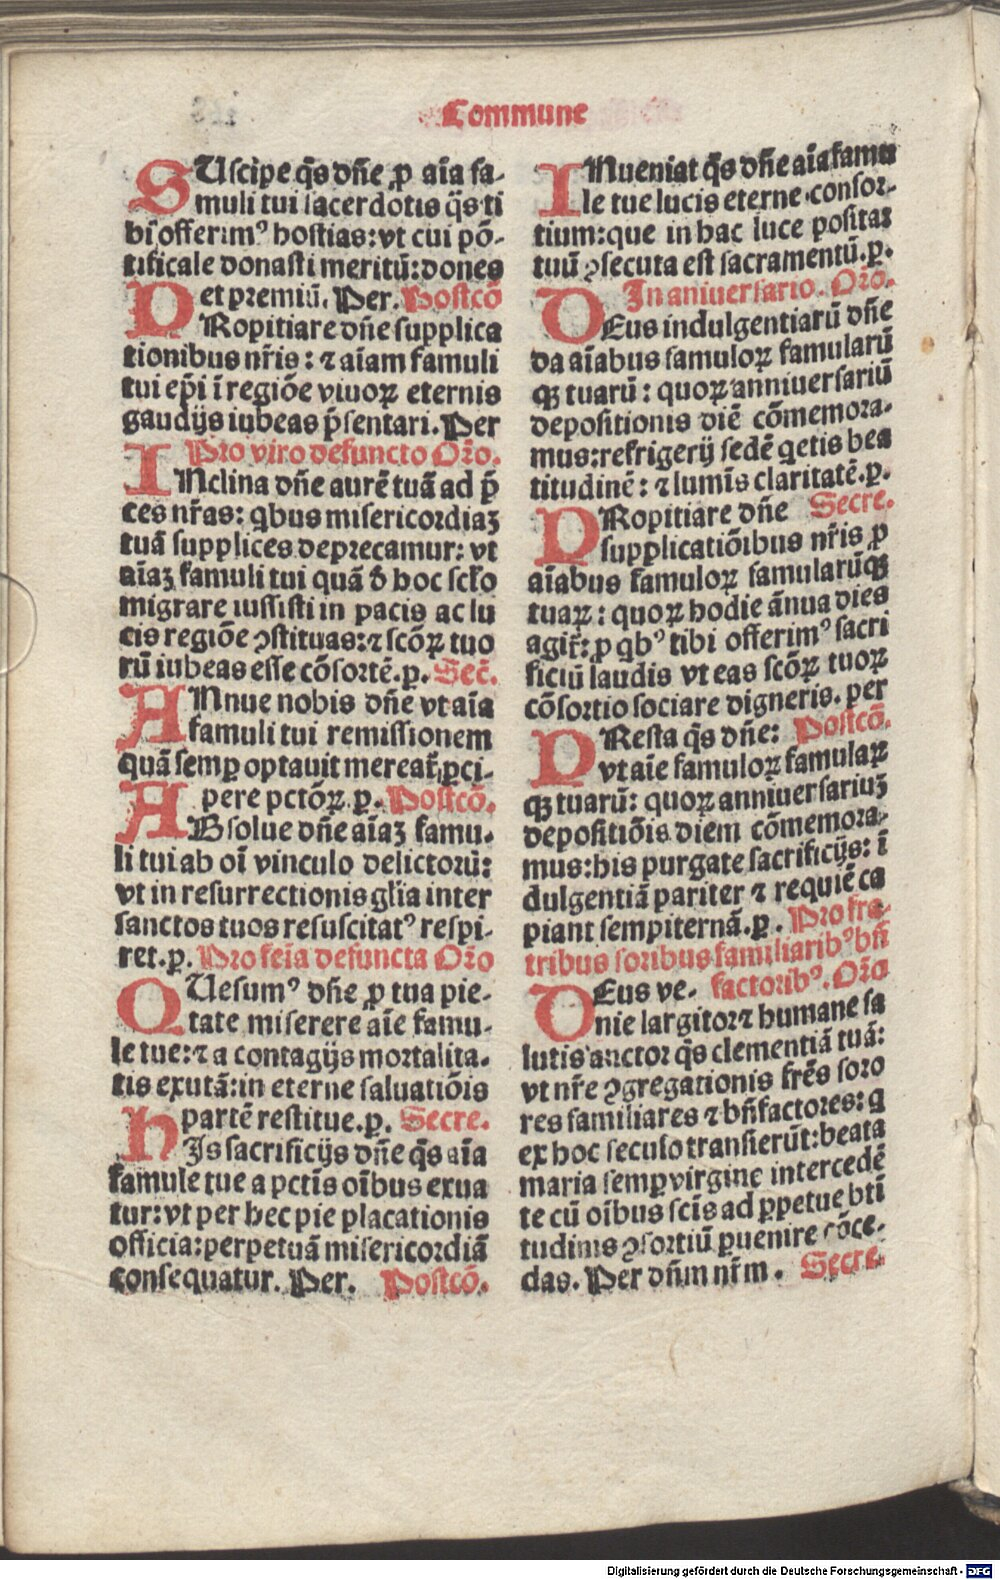 Commune
SUscipe q̄s dn̄e ꝓ aīa fa-
muli tui sacerdotis q̄s ti
bi offerimꝰ hostias: vt cui pō-
tificale donasti meritū: dones
et premiū. Per. Postcō
PRopitiare dn̄e supplica
tionibus nr̄is: ⁊ aīam famuli
tui ep̄i ī regiōe viuoꝝ eternis
gaudijs iubeas p̄sentari. Per
Pro viro defuncto Or̄o.
INclina dn̄e aurē tuā ad p̄
ces nr̄as: qbus misericordiaꝫ
tuā supplices deprecamur: vt
aīaꝫ famuli tui quā ð hoc scl̄o
migrare iussisti in pacis ac lu
cis regiōe ꝯstituas: ⁊ scōꝝ tuo
rū iubeas esse cōsortē. p. Sec̄.
ANnue nobis dn̄e vt aīa
famuli tui remissionem
quā semꝑ optauit mereat̄ ꝑci-
pere pctōꝝ. p. Postcō.
ABsolue dn̄e aīaꝫ famu-
li tui ab oī vinculo delictorū:
vt in resurrectionis gl̄ia inter
sanctos tuos resuscitatꝰ respi-
ret. p. Pro feīa defuncta Or̄o
QUesumꝰ dn̄e ꝓ tua pie-
tate miserere aīe famu-
le tue: ⁊ a contagijs mortalita-
tis exutā: in eterne saluatiōis
partē restitue. p. Secre.
HIs sacrificijs dn̄e q̄s aīa
famule tue a pctīs oībus exua
tur: vt per hec pie placationis
officia: perpetuā misericordiā
consequatur. Per. Postcō.
INueniat q̄s dn̄e aīa famu
le tue lucis eterne consor-
tium: que in hac luce positaꝫ
tuū ꝯsecuta est sacramentū. p.
In aniuersario. Or̄o.
DEus indulgentiarū dn̄e
da aīabus famuloꝝ famularū
qꝫ tuarū: quoꝝ anniuersariū
depositionis diē cōmemora-
mus: refrigerij sedē qetis bea
titudinē: ⁊ lumīs claritatē. p.
PRopitiare dn̄e Secre.
supplicatiōibus nr̄is ꝓ
aīabus famuloꝝ famularūqꝫ
tuaꝝ: quoꝝ hodie ānua dies
agit̄: ꝓ qbꝰ tibi offerimꝰ sacri
ficiū laudis vt eas scōꝝ tuoꝝ
cōsortio sociare digneris. per
PResta q̄s dn̄e: Postcō.
vt aīe famuloꝝ famulaꝝ
qꝫ tuarū: quoꝝ anniuersariuꝫ
depositiōis diem cōmemora-
mus: his purgate sacrificijs: ī
dulgentiā pariter ⁊ requiē ca
piant sempiternā. p. Pro fra-
tribus soribus familiaribꝰ bn̄
factoribꝰ. Or̄o
DEus ve-
nie largitor ⁊ humane sa
lutis auctor q̄s clementiā tuā:
vt nr̄e ꝯgregationis frēs soro
res familiares ⁊ bn̄factores: q
ex hoc seculo transierūt: beata
maria semꝑ virgine intercedē
te cū oībus scīs ad ꝑpetue bti
tudinis ꝯsortiū ꝑuenire cōce-
das. Per dn̄m nr̄m. Secre.
Digitalisierung gefördert durch die Deutsche Forschungsgemeinschaft - DFG